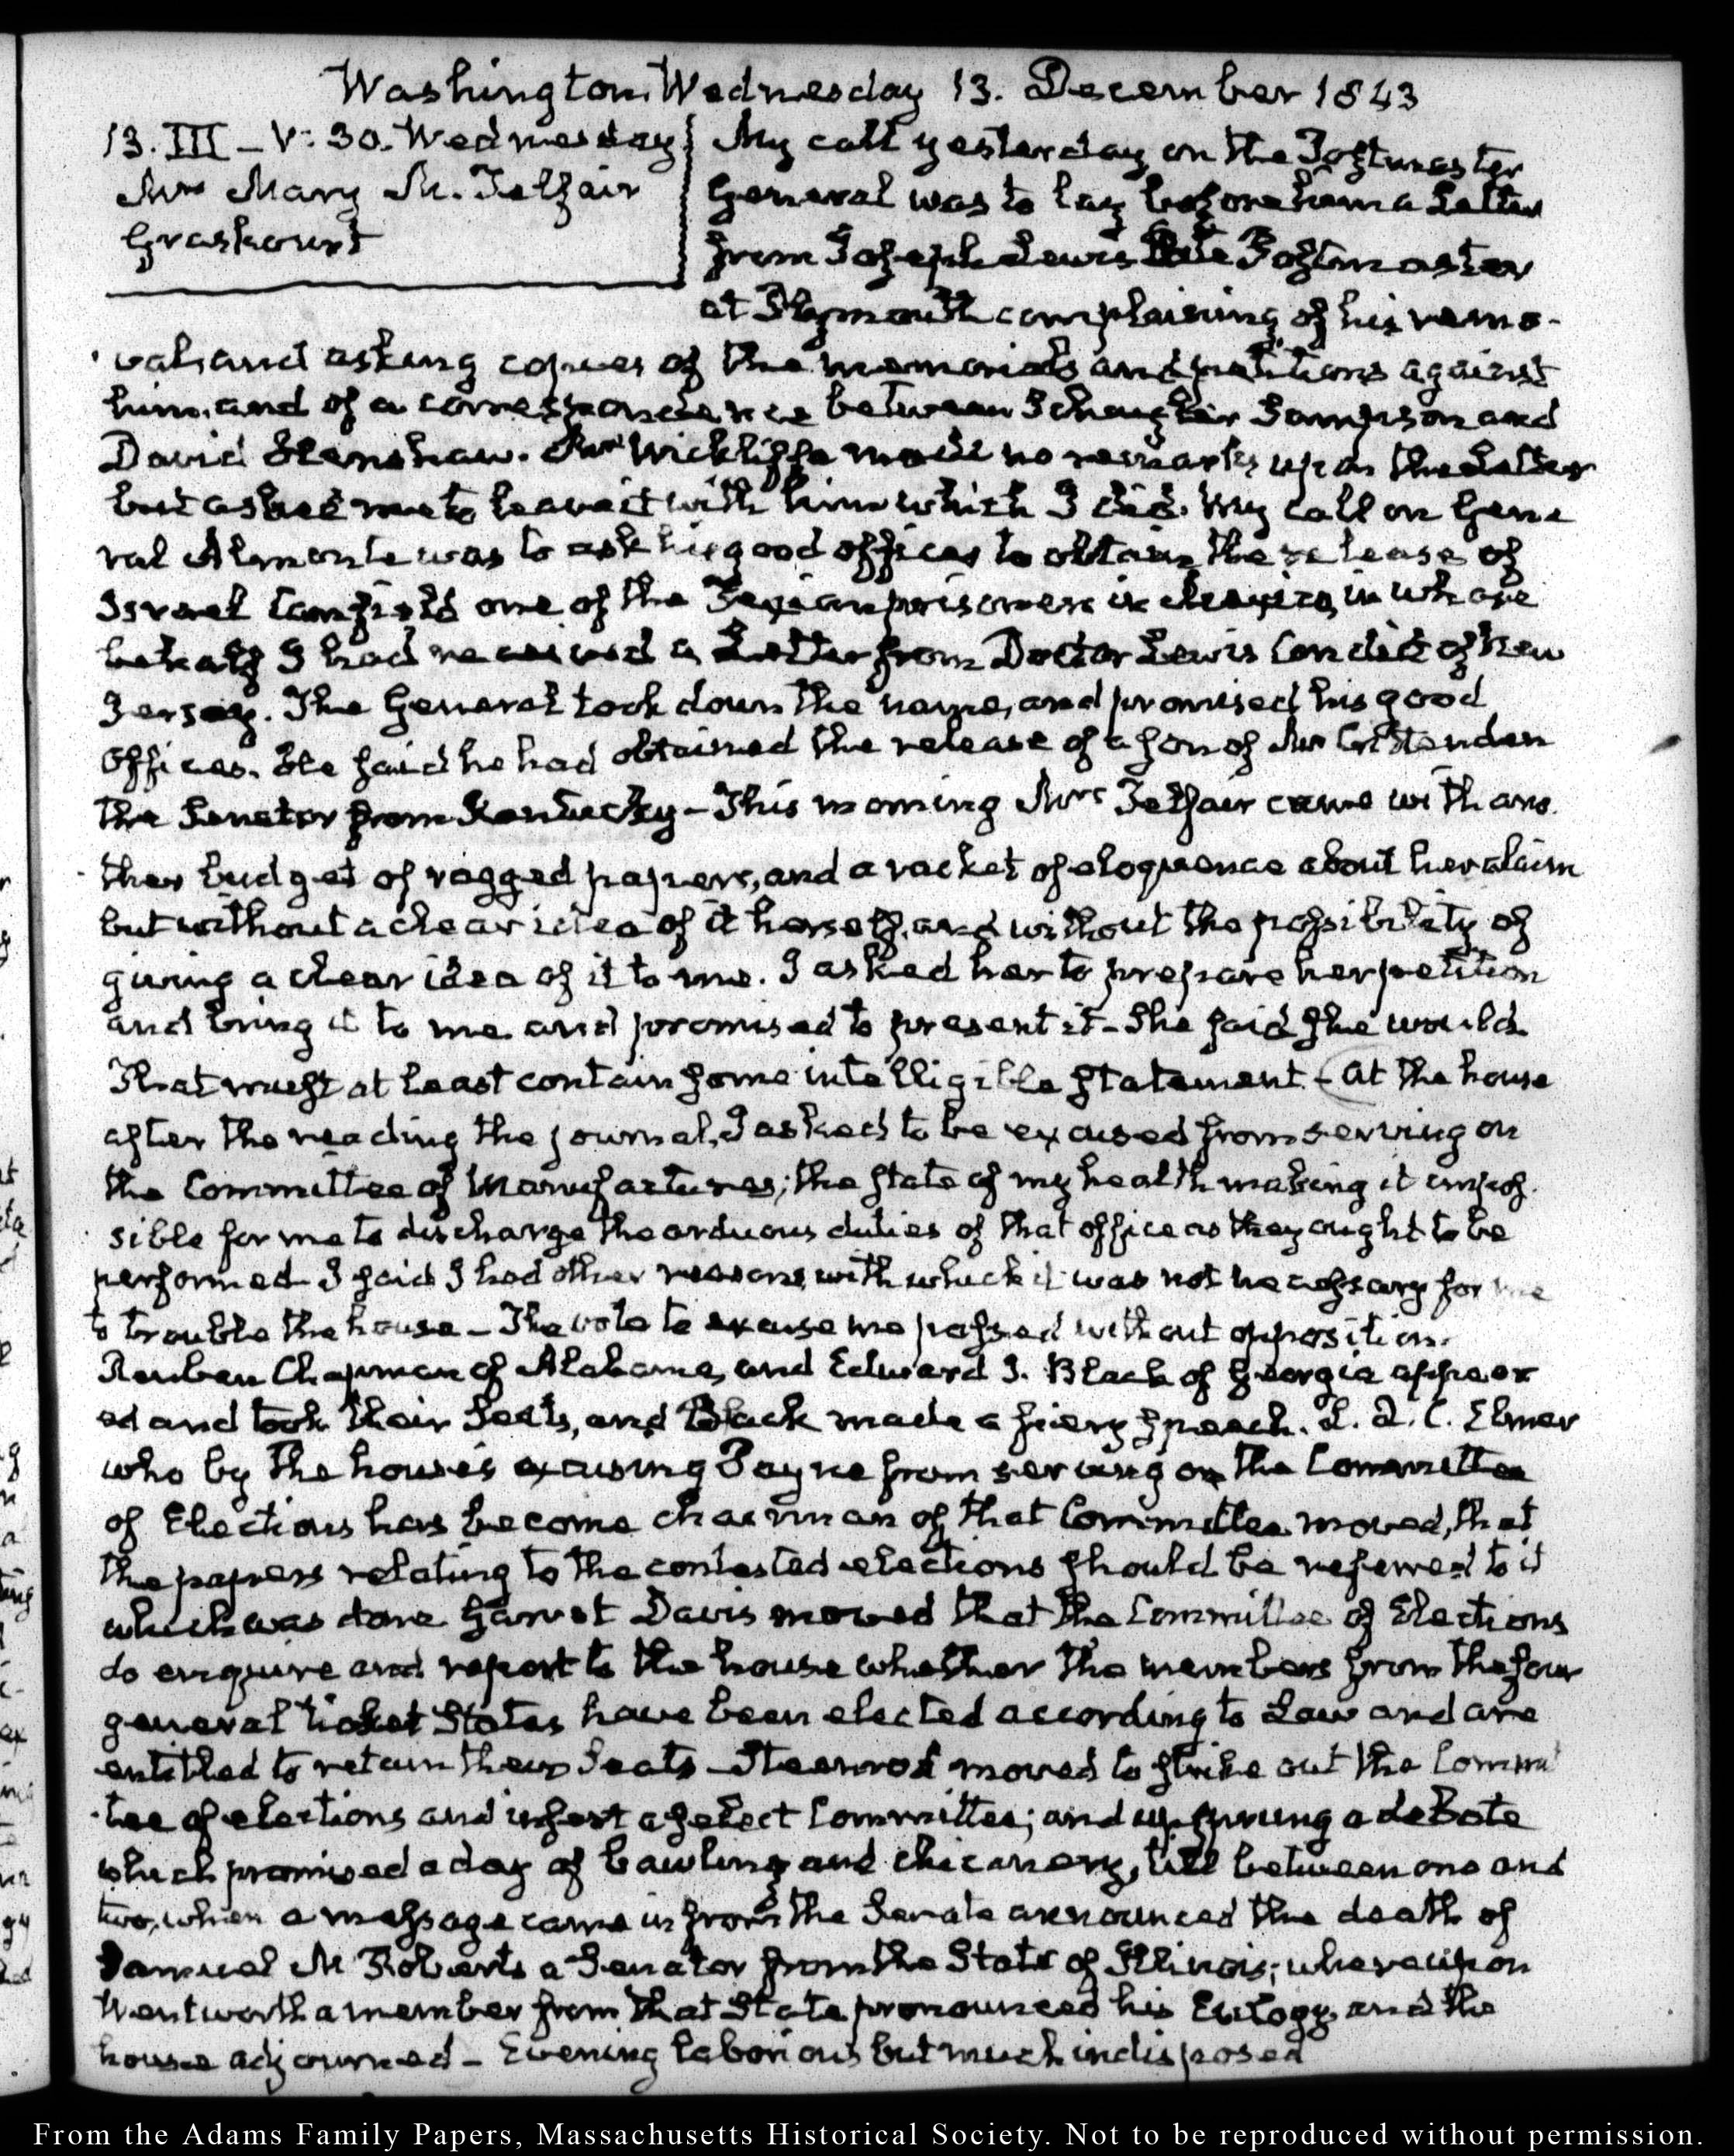 Washington Wednesday 13. December 1843
13. III – V: 30. Wednesday
Mrs Mary M. Telfair
Graskourt
My call yesterday on the Postmaster
General was to lay before him a Letter
from Joseph Lewis late Postmaster
at Plymouth complaining of his remo-
val, and asking copies of the memorials and petitions against
him, and of a correspondence between Schuyler Sampson and
David Henshaw. Mr Wickliffe made no remarks upon the Letter
but asked me to leave it with him which I did. My call on Gene
ral Almonte was to ask his good offices to obtain the release of
Israel Canfield one of the Texian prisoners in Mexico, in whose
behalf I had received a Letter from Doctor Lewis Condict of New
Jersey. The General took down the name, and promised his good
offices. He said he had obtained the release of a son of Mr Crittenden
the Senator from Kentucky – This morning Mrs Telfair came with ano-
ther budget of ragged papers, and a racket of eloquence about her claim
but without a clear idea of it herself, and without the possibility of
giving a clear idea of it to me. I asked her to prepare her petition
and bring it to me and promised to present it – She said she would.
That must at least contain some intelligible statement – (At the house
after the reading the journal, I asked to be excused from serving on
the Committee of Manufactures; the state of my health making it impos-
sible for me to discharge the arduous duties of that office as they ought to be
performed – I said I had other reasons, with which it was not necessary for me
to trouble the house – The vote to excuse me passed without opposition.
Reuben Chapman of Alabama, and Edward J. Black of Georgia appear
ed and took their Seats, and Black made a fiery speech. L. Q. C. Elmer
who by the house's excusing Payne from serving on the Committee
of Elections has become chairman of that Committee moved, that
the papers relating to the contested elections should be referred to it
which was done Garret Davis moved that the Committee of Elections
do enquire and report to the house whether the members from the four
general ticket States have been elected according to Law and are
entitled to retain their Seats – Steenrod moved to strike out the Commit
tee of elections and insert a select Committee; and up sprung a debate
which promised a day of bawling and chicanery, till between one and
two, when a message came in from the Senate announced the death of
Samuel McRoberts a Senator from the State of Illinois; whereupon
Wentworth a member from that State pronounced his Eulogy, and the
house adjourned – Evening laborious but much indisposed
From the Adams Family Papers, Massachusetts Historical Society. Not to be reproduced without permission.